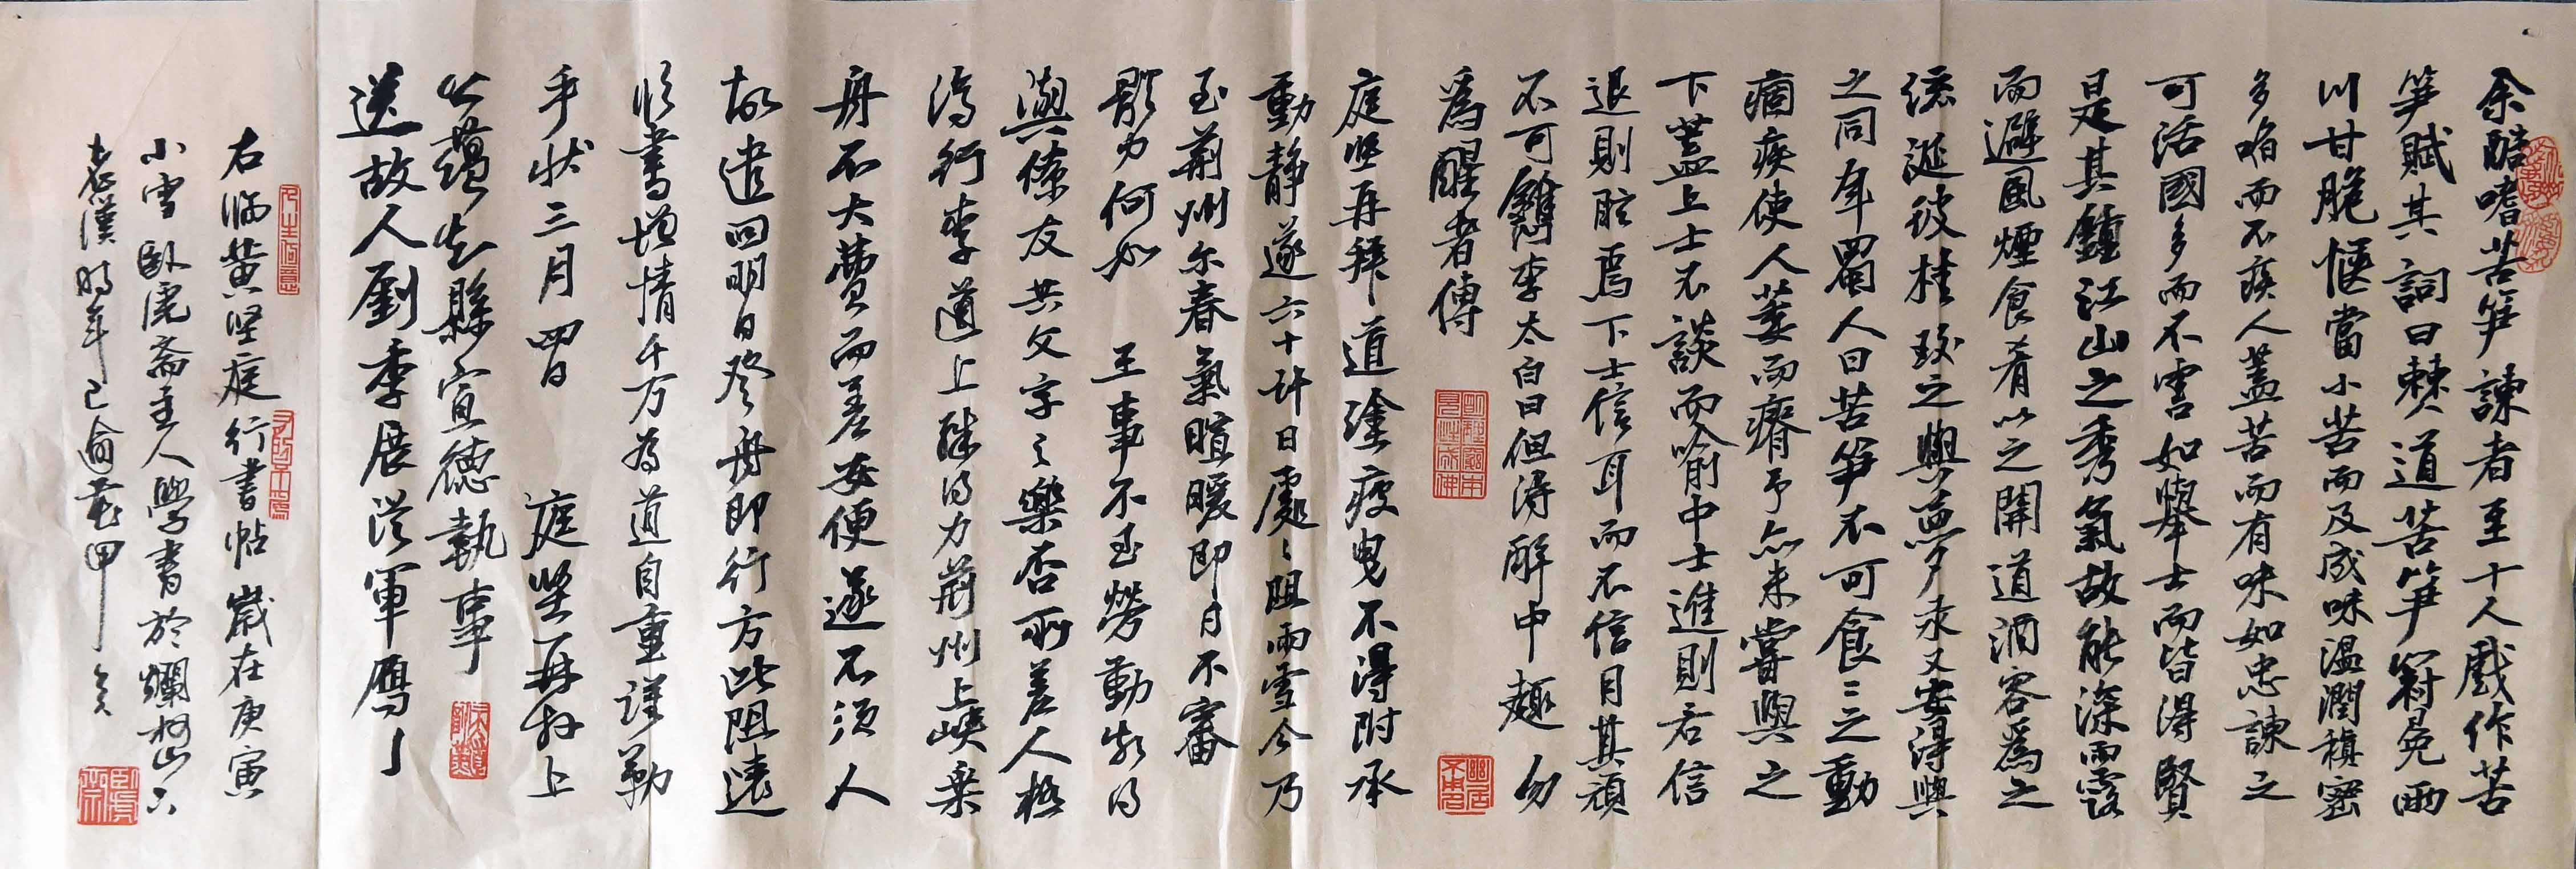 余酷嗜苦笋諫者至十人戲作苦
笋賦其詞曰僰道苦笋冠冕兩
川甘脆愜當小苦而及成味溫潤稹密
多啗而不疾人蓋苦而有味如忠諫之
可活國多而不害如舉士而皆得賢
是其鍾江山之秀氣故能深雨露
而避風煙食肴以之開道酒客為之
流涎彼桂玫之與夢永又安得與
之同年蜀人曰苦笋不可食食之動
痼疾使人萎而瘠予亦未嘗與之
下蓋上士不談而喻中士進則若信
退則眩焉下士信耳而不信目其頑
不可鐫李太白曰但得醉中趣勿
為醒者傳
庭堅再拜道塗疲曳不得附承
動靜遂六十許日處處阻雨雪今乃
至荊州尓春氣暄暖即日不審
體力何如 王事不至勞勤頗得
與僚友共文字之樂否所差人極
濟行李道上殊得力荊州上峽乘
舟不大費而差安便遂不須人
故遣回明日登舟即行方此阻遠
臨書增情千万為道自重謹勒
手狀三月四日 庭堅再拜上
公蘊知縣宣德執事
送故人劉季展從軍雁門
右臨黃堅庭行書帖 歲在庚寅
小雪臥虎齋主人學書於爛柯山下
老漢時年已逾花甲矣